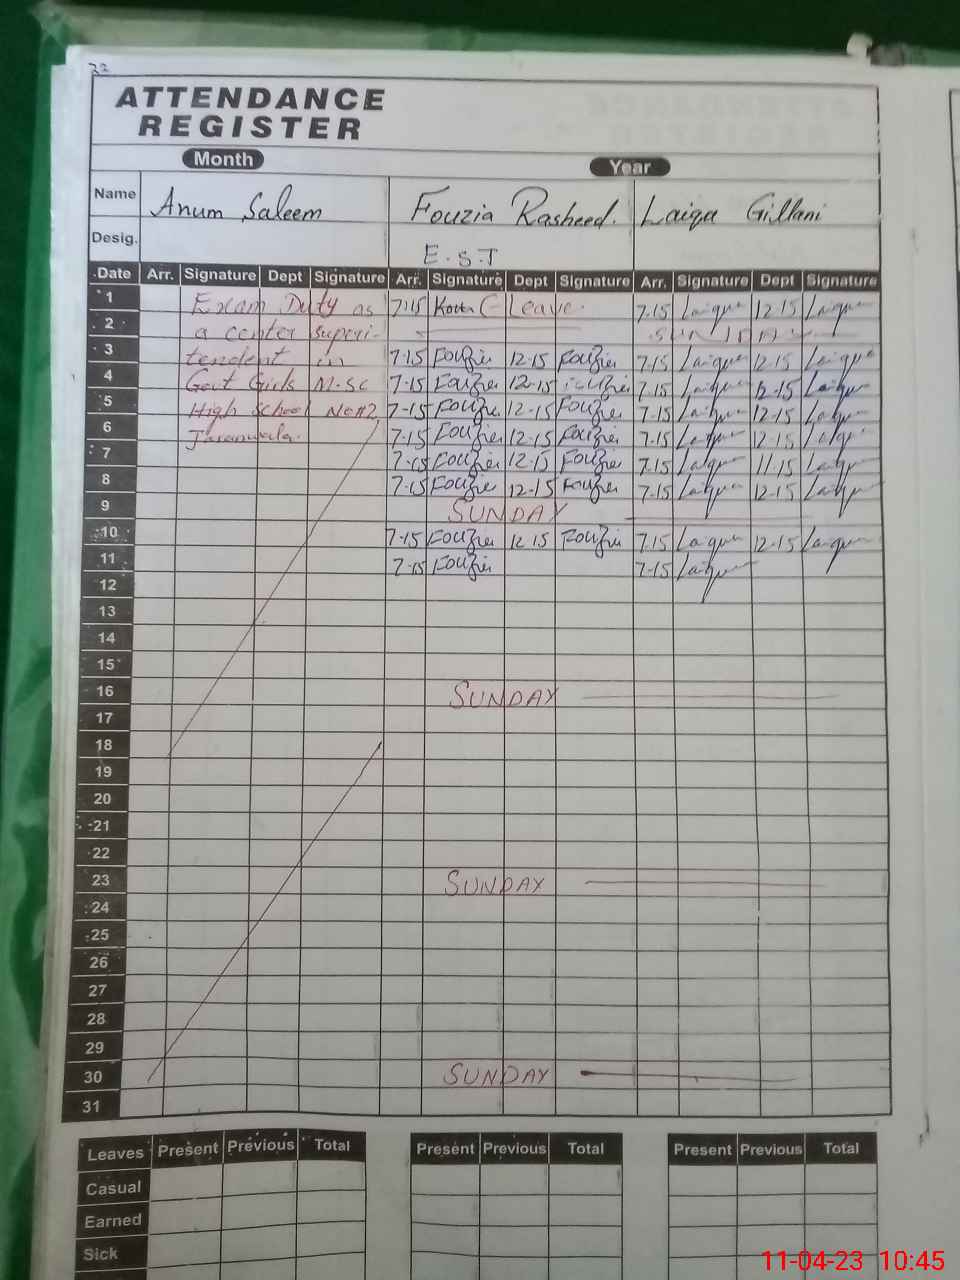 22
ATTENDANCE
REGISTER
Month Year
Name Anum Saleem Fouzia Rasheed. Laiqa Gillani
Desig. E.S.T
Date Arr. Signature Dept Signature Arr. Signature Dept Signature Arr. Signature Dept Signature
1 Exam Duty as 7-15 C-Leave 7-15 Laiqa 12-15 Laiqa
2 a center superi- SUNDAY
3 tendent in 7-15 Fouzia 12-15 Fouzia 7-15 Laiqa 12-15 Laiqa
4 Govt Girls M.Sc 7-15 Fouzia 12-15 Fouzia 7-15 Laiqa 12-15 Laiqa
5 High School No#2 7-15 Fouzia 12-15 Fouzia 7-15 Laiqa 12-15 Laiqa
6 Jaranwala. 7-15 Fouzia 12-15 Fouzia 7-15 Laiqa 12-15 Laiqa
7 7-15 Fouzia 12-15 Fouzia 7-15 Laiqa 11-15 Laiqa
8 7-15 Fouzia 12-15 Fouzia 7-15 Laiqa 12-15 Laiqa
9 SUNDAY
10 7-15 Fouzia 12 15 Fouzia 7-15 Laiqa 12-15 Laiqa
11 7-15 Fouzia 7-15 Laiqa
12
13
14
15
16 SUNDAY
17
18
19
20
21
22
23 SUNDAY
24
25
26
27
28
29
30 SUNDAY
31
Leaves Present Previous Total Present Previous Total Present Previous Total
Casual
Earned
Sick
11-04-23 10:45